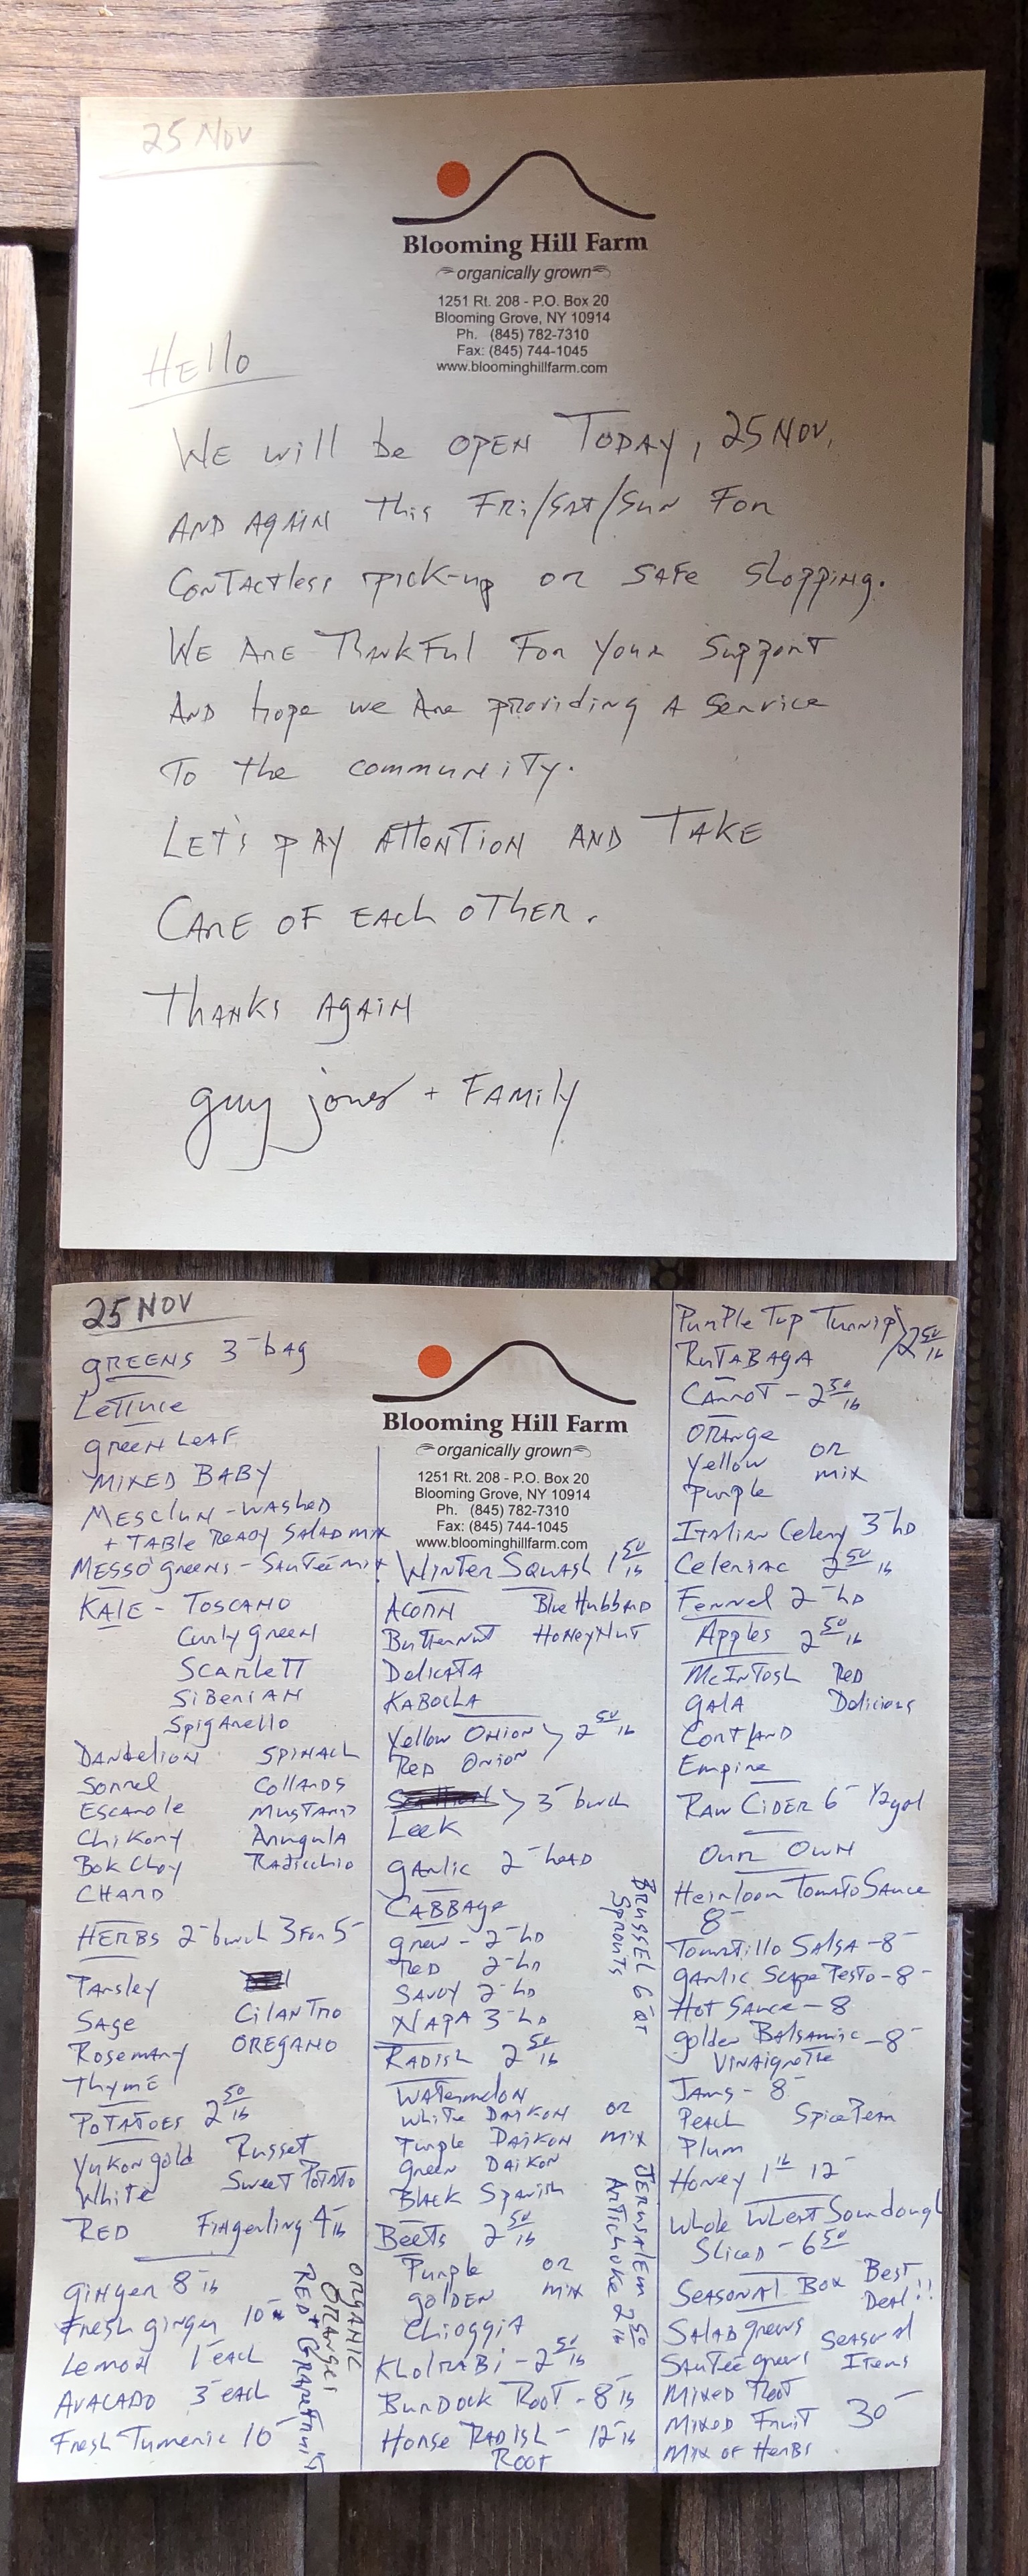 25 Nov
Blooming Hill Farm
organically grown
1251 Rt. 208 - P.O. Box 20
Blooming Grove, NY 10914
Ph. (845) 782-7310
Fax: (845) 744-1045
www.bloominghillfarm.com
Hello
We will be OPEN TODAY, 25 NOV,
AND AGAIN this FRI/SAT/SUN FOR
CONTACTless pick-up OR SAFE Shopping.
WE ARE THANKFUL FOR YOUR SUPPORT
AND hope we ARE providing A Service
To the community.
LET'S PAY ATTENTION AND TAKE
CARE OF EACH OTHER.
THANKS AGAIN
guy jones + FAMILY
25 NOV
GREENS 3- bag
Lettuce
GREEN LEAF
MIXED BABY
MESCLUN - WASHED
+ TABLE READY SALAD MIX
MESSO greens - SAUTEE mix
KALE - TOSCANO
Curly green
SCARLETT
SIBERIAN
Spiganello
DANDELION SPINACH
Sorrel COLLARDS
Escarole MUSTARD
Chikory Arugula
Bok Choy Radicchio
CHARD
HERBS 2- bunch 3 For 5-
Parsley
SAGE CILANTRO
Rosemary OREGANO
Thyme
POTATOES 2 50/lb
Yukon gold Russet
White Sweet Potato
RED Fingerling 4- lb
GINGER 8- lb
Fresh ginger 10-
Lemon 1- EACH
AVACADO 3- each
Fresh Tumeric 10-
ORGANIC
ORANGES
RED + GRAPEFRUIT
Blooming Hill Farm
organically grown
1251 Rt. 208 - P.O. Box 20
Blooming Grove, NY 10914
Ph. (845) 782-7310
Fax: (845) 744-1045
www.bloominghillfarm.com
WINTER SQUASH 1 50/lb
ACORN Blue Hubbard
Butternut HONEYNUT
DELICATA
KABOCHA
Yellow ONION > 2 50/lb
RED ONION
> 3- bunch
Leek
GARLIC 2- head
CABBAGE
green - 2- HD
RED 2- HD
SAVOY 2- HD
NAPA 3- HD
RADISH 2 50/lb
WATERMELON
White DAIKON OR
Purple DAIKON MIX
Green DAIKON
BLACK Spanish
Beets 2 50/lb
Purple OR
GOLDEN MIX
Chioggia
KholRABi - 2 50/lb
BURDOCK ROOT - 8- lb
HORSE RADISH - 12- lb
ROOT
BRUSSEL 6- QT
SPROUTS
JERUSALEM 2 50/lb
ARTICHOKE
PURPLE Top Turnip
RUTABAGA > 2 50/lb
CARROT - 2 50/lb
ORANGE
Yellow OR
Purple MIX
ITALIAN Celery 3- HD
Celeriac 2 50/lb
Fennel 2- HD
Apples 2 50/lb
McINTOSH RED
GALA Delicious
CORTLAND
Empire
RAW CIDER 6- 1/2 gal
OUR OWN
Heirloom TOMATO SAUCE
8-
Tomatillo SALSA - 8-
GARLIC Scape Pesto - 8-
HOT SAUCE - 8
golden Balsamic - 8-
VINAIGRETTE
JAMS - 8-
Peach Spice Pear
Plum
Honey 1 lb 12-
Whole WHEAT Sourdough
Sliced - 6 50
SEASONAL BOX Best
Deal!!
SALAD greens Seasonal
SAUTEE greens Items
Mixed Root
Mixed Fruit 30-
MIX OF HERBS